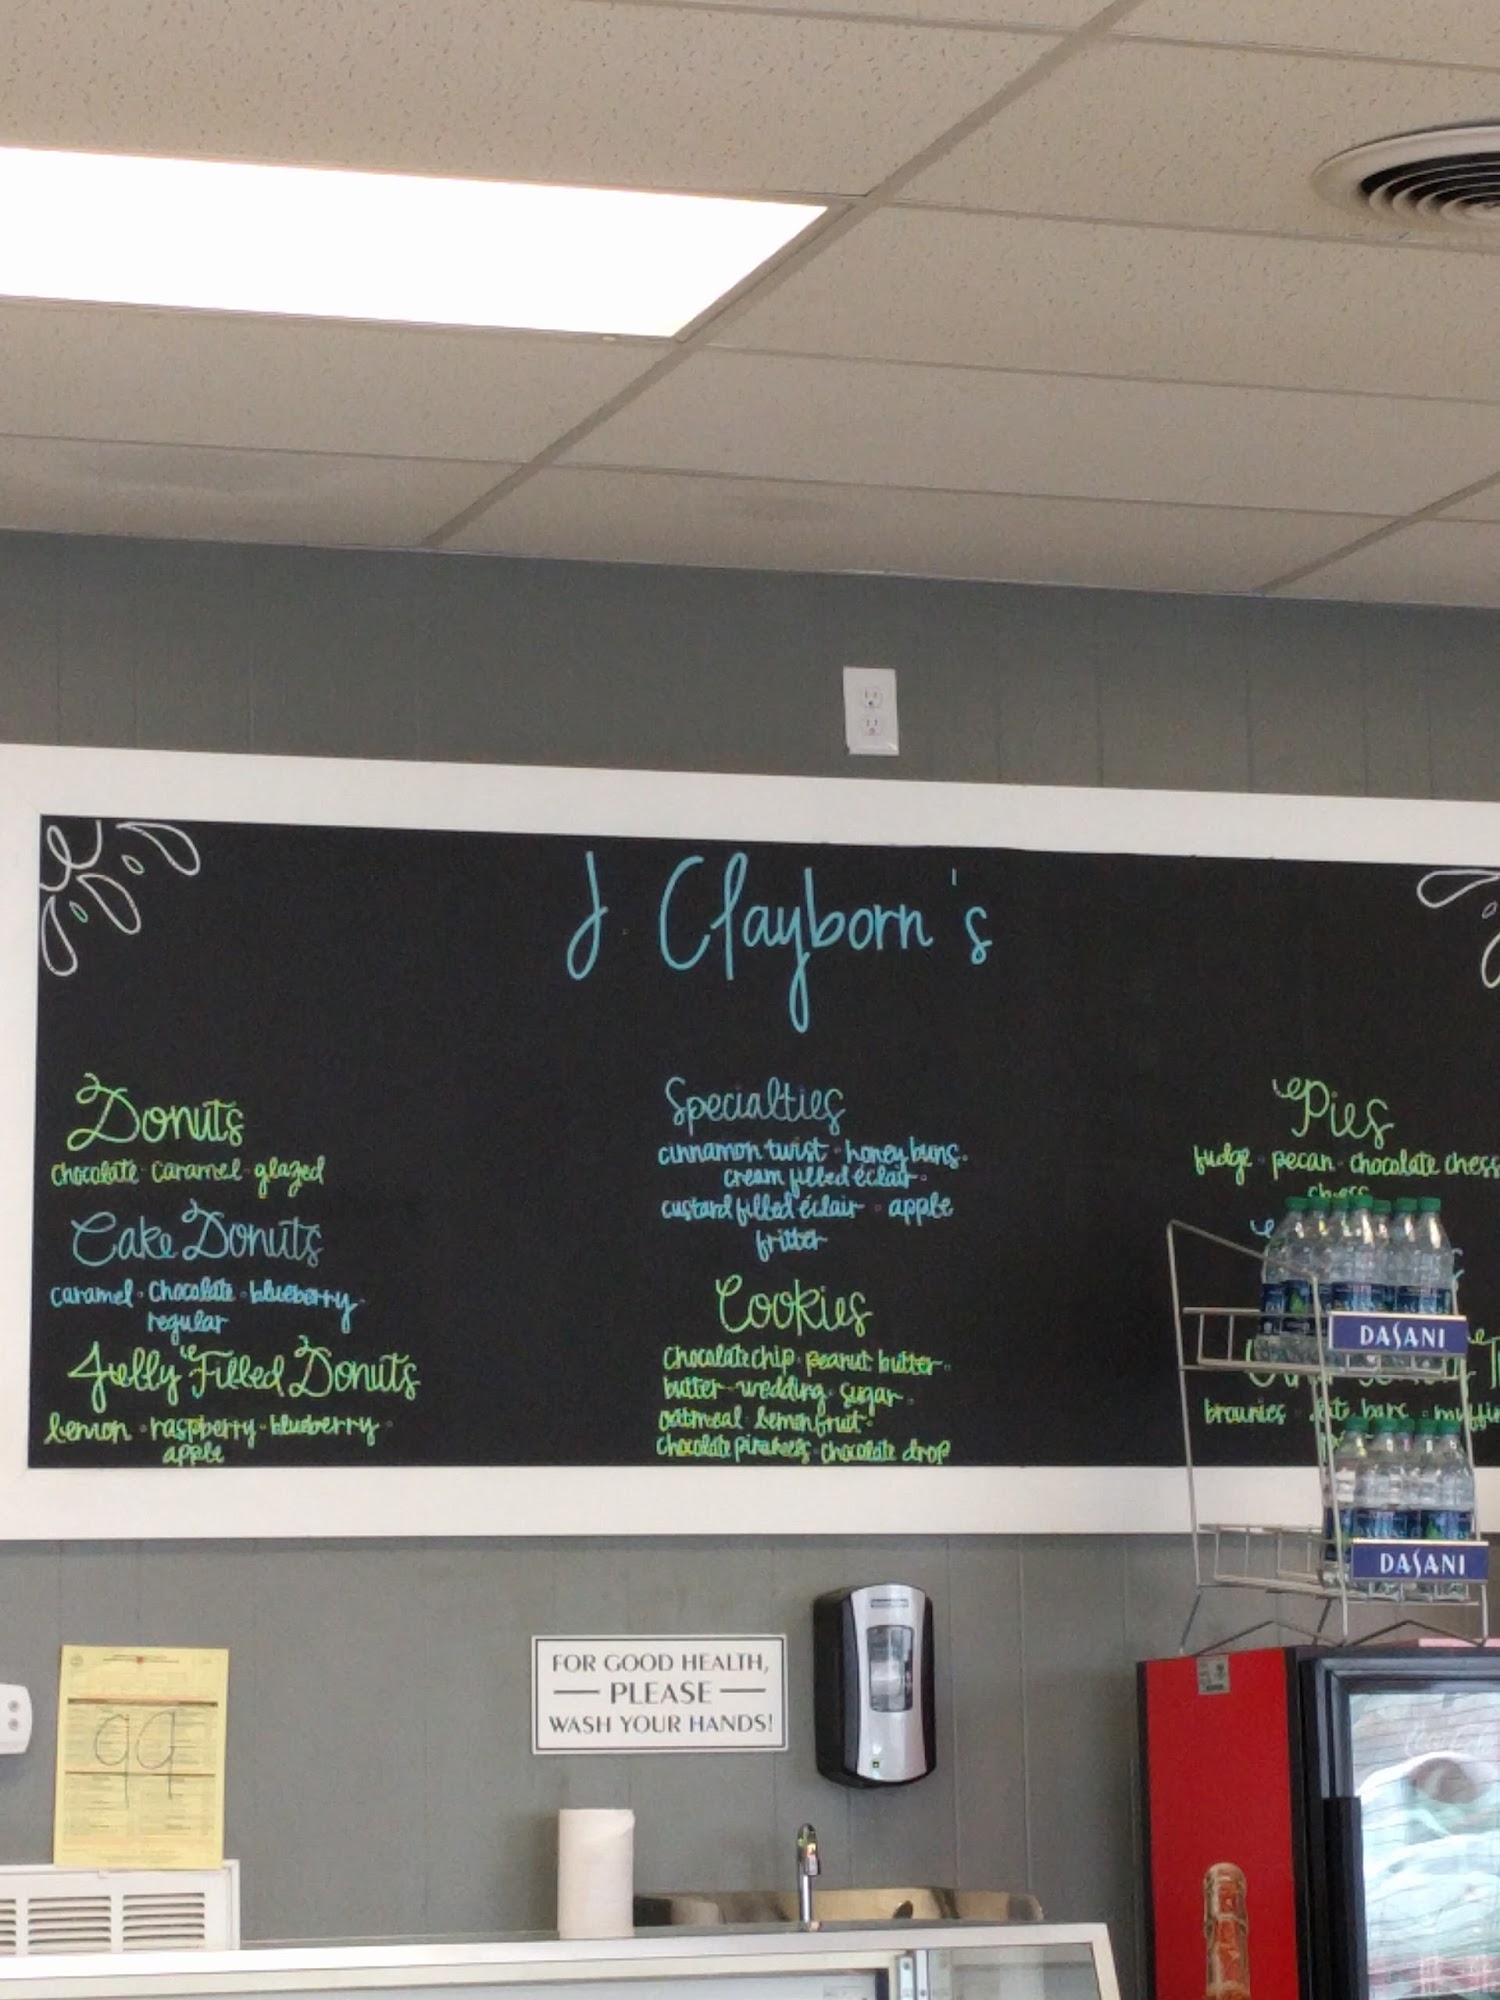 J. Clayborn's
Donuts
chocolate · caramel · glazed
Cake Donuts
caramel · chocolate · blueberry ·
regular
Jelly Filled Donuts
lemon · raspberry · blueberry ·
apple
Specialties
cinnamon twist · honey buns ·
cream filled éclair ·
custard filled éclair · apple
fritter
Cookies
chocolate chip · peanut butter ·
butter · wedding · sugar ·
oatmeal · lemon fruit ·
chocolate pinwheels · chocolate drop
Pies
fudge · pecan · chocolate chess
chess
brownies
DASANI
DASANI
99
FOR GOOD HEALTH,
PLEASE
WASH YOUR HANDS!